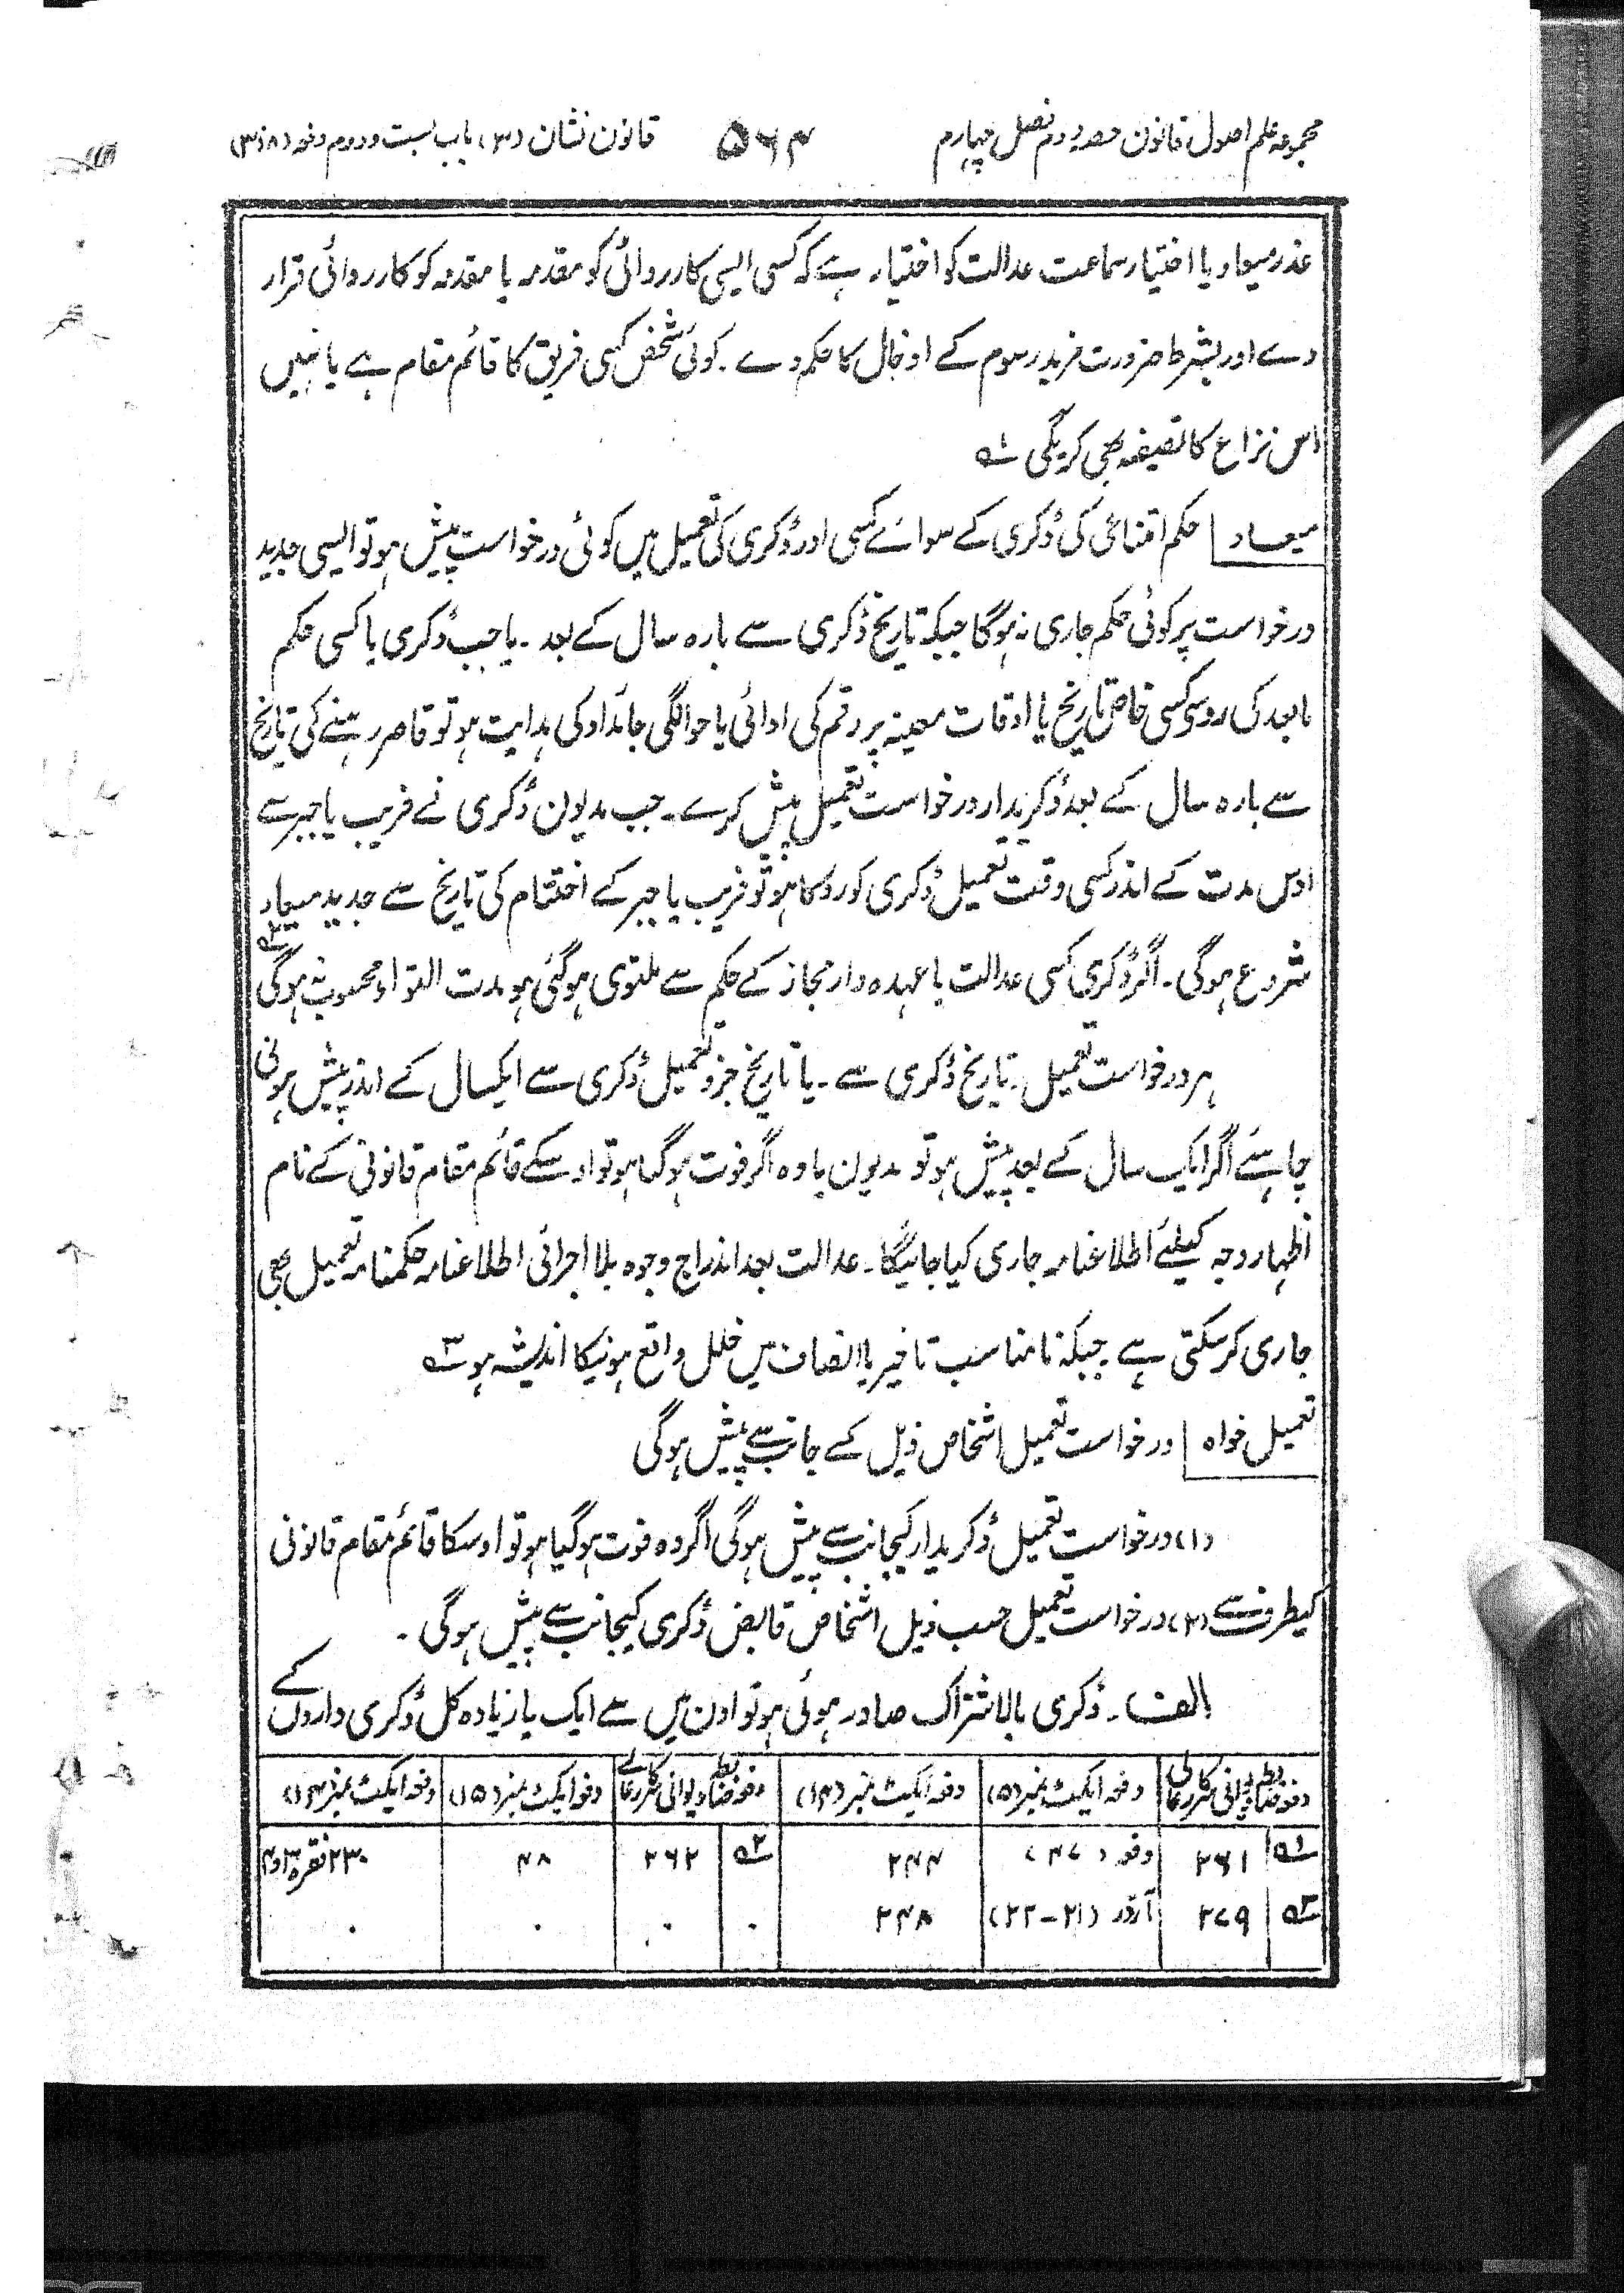 مجموعہ علم اصول قانون حصہ دوم فصل چہارم ۵۶۴ قانون نشان (۳) باب بست و دوم دفعہ (۳۱۸)
عذر میعاد یا اختیار سماعت عدالت کو اختیار ہے کہ کسی ایسی کارروائی کو مقدمہ یا مقدمہ کو کارروائی قرار
دے اور بشرط ضرورت مزید رسوم کے ادخال کا حکم دے ۔ کوئی شخص کسی فریق کا قائم مقام ہے یا نہیں
اس نزاع کا تصفیہ بھی کریگی ۱؎
میعاد | حکم امتناعی کی ڈکری کے سوائے کسی اور ڈکری کی تعمیل میں کوئی درخواست پیش ہو تو ایسی جدید
درخواست پر کوئی حکم جاری نہ ہوگا جبکہ تاریخ ڈکری سے بارہ سال کے بعد ۔ یا جب ڈکری یا کسی حکم
مابعد کی رو سے کسی خاص تاریخ یا اوقات معینہ پر رقم کی ادائی یا حوالگی جائداد کی ہدایت ہو تو قاصر رہنے کی تاریخ
سے بارہ سال کے بعد ڈکریدار درخواست تعمیل پیش کرے ۔ جب مدیون ڈکری نے فریب یا جبر سے
اوس مدت کے اندر کسی وقت تعمیل ڈکری کو روکا ہو تو فریب یا جبر کے اختتام کی تاریخ سے جدید میعاد
شروع ہوگی ۔ اگر ڈکری کسی عدالت یا عہدہ دار مجاز کے حکم سے ملتوی ہوگئی ہو مدت التوا محسوب ہوگی ۲؎
ہر درخواست تعمیل ۔ تاریخ ڈکری سے ۔ یا تاریخ جزو تعمیل ڈکری سے ایکسال کے اندر پیش ہونی
چاہئے اگر ایک سال کے بعد پیش ہو تو مدیون یا وہ اگر فوت ہوگیا ہو تو اوسکے قائم مقام قانونی کے نام
اظہار وجہ کیلئے اطلاعنامہ جاری کیا جائیگا ۔ عدالت بعد اندراج وجوہ بلا اجرائی اطلاعنامہ حکمنامہ تعمیل بھی
جاری کرسکتی ہے جبکہ نامناسب تاخیر یا انصاف میں خلل واقع ہونیکا اندیشہ ہو ۳؎
تعمیل خواہ | درخواست تعمیل اشخاص ذیل کے جانب سے پیش ہوگی
(۱) درخواست تعمیل ڈکریدار کیجانب سے پیش ہوگی اگر وہ فوت ہوگیا ہو تو اوسکا قائم مقام قانونی
کیطرف سے (۲) درخواست تعمیل حسب ذیل اشخاص قابض ڈکری کیجانب سے پیش ہوگی ۔
الف ۔ ڈکری بالاشتراک صادر ہوئی ہو تو اون میں سے ایک یا زیادہ کل ڈکری داروں کے
دفعہ ضابطہ دیوانی سرکار عالی | دفعہ ایکٹ نمبر (۵) | دفعہ ایکٹ نمبر (۱۴) | دفعہ ضابطہ دیوانی سرکار عالی | دفعہ ایکٹ نمبر (۱۵) | دفعہ ایکٹ نمبر (۱۴)
۱؎ | ۲۶۱ | دفعہ (۴۷) | ۲۴۴ | ۲؎ | ۲۶۲ | ۴۸ | ۲۳۰ فقرہ ۳ و ۴
۳؎ | ۲۷۹ | آرڈر (۲۱-۲۲) | ۲۴۸ | ۰ | ۰ | ۰ | ۰